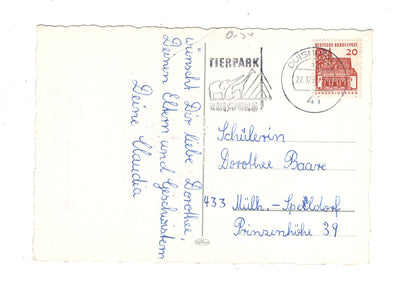 wünscht Dir liebe Dorothee
Deinen Eltern und Geschwistern
Deine Claudia
TIERPARK
DUISBURG
DUISBURG
22.12.
41
DEUTSCHE BUNDESPOST
20
LORSCH · HESSEN
Schülerin
Dorothee Baare
433 Mülh. - Speldorf
Prinzenhöhe 39